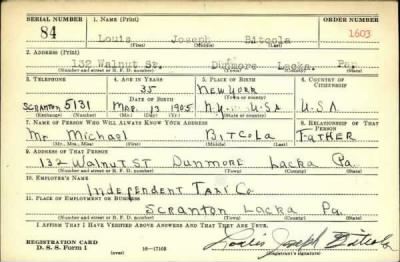 SERIAL NUMBER 1. NAME (Print) ORDER NUMBER
84 Louis Joseph Bitcola 1603
(First) (Middle) (Last)
2. ADDRESS (Print)
132 Walnut St. Dunmore Lacka. Pa.
(Number and street or R. F. D. number) (Town) (County) (State)
3. TELEPHONE 4. AGE IN YEARS 5. PLACE OF BIRTH 6. COUNTRY OF CITIZENSHIP
35 NEW YORK
DATE OF BIRTH (Town or county)
SCRANTON 5131 MAR. 13 1905 N.Y. U.S.A U.S.A.
(Exchange) (Number) (Mo.) (Day) (Yr.) (State or country)
7. NAME OF PERSON WHO WILL ALWAYS KNOW YOUR ADDRESS 8. RELATIONSHIP OF THAT PERSON
Mr Michael BITCOLA FATHER
(Mr., Mrs., Miss) (First) (Middle) (Last)
9. ADDRESS OF THAT PERSON
132 Walnut ST Dunmore Lacka Pa.
(Number and street or R. F. D. number) (Town) (County) (State)
10. EMPLOYER'S NAME
Independent Taxi Co.
11. PLACE OF EMPLOYMENT OR BUSINESS
Scranton Lacka Pa.
(Number and street or R. F. D. number) (Town) (County) (State)
I AFFIRM THAT I HAVE VERIFIED ABOVE ANSWERS AND THAT THEY ARE TRUE.
REGISTRATION CARD
D. S. S. Form 1 (over) 16—17105 Louis Joseph Bitcola
(Registrant's signature)